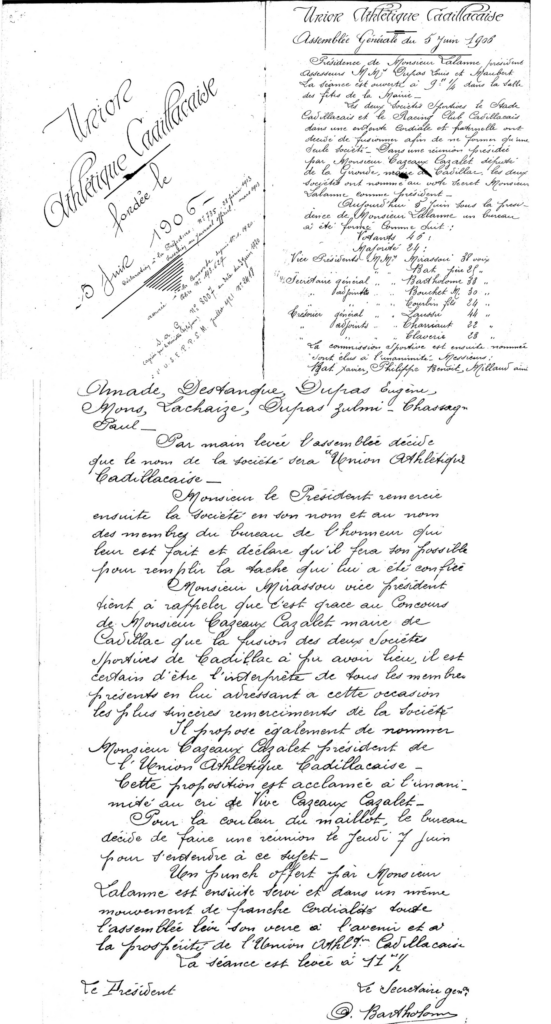 Union
Athlétique Cadillacaise
fondée le
5 Juin 1906
Union Athlétique Cadillacaise
Assemblée Générale du 5 Juin 1906
Présidence de Monsieur Lalanne président
Assesseurs MMrs Dupas Louis et Maubert
La séance est ouverte à 9 h 1/2 dans la Salle
des fêtes de la Mairie —
Les deux Sociétés Sportives le Stade
Cadillacais et le Racing Club Cadillacais
dans une entente Cordiale et fraternelle ont
décidé de fusionner afin de ne former qu'une
Seule Société — Dans une réunion présidée
par Monsieur Cazeaux Cazalet député
de la Gironde, maire de Cadillac, les deux
Sociétés ont nommé au vote Secret Monsieur
Lalanne comme président —
Aujourd'hui 5 Juin sous la prési-
dence de Monsieur Lalanne un bureau
a été formé Comme Suit :
Votants 46 :
Majorité 24 :
Vice Présidents MMrs Mirassou 38 voix
" " Bat père 25 "
Secrétaire général " Bartholome 38 "
" adjoints " Bouchet M. 30 "
" " Courbin fils 24 "
Trésorier général " Laussu 44 "
" adjoints " Charriaut 22 "
" " Claverie 28 "
La commission Sportive est ensuite nommée
Sont élus à l'unanimité Messieurs :
Bat Xavier, Philippe Benoit, Millaud ainé
Amade, Destanque, Dupas Eugène,
Mons, Lachaize, Dupas Zulmi — Chassagn
Paul —
Par main levée l'assemblée décide
que le nom de la société sera "Union Athlétique
Cadillacaise —
Monsieur le Président remercie
ensuite la société en son nom et au nom
des membres du bureau de l'honneur qui
leur est fait et déclare qu'il fera son possible
pour remplir la tache qui lui a été confiée
Monsieur Mirassou vice président
tient à rappeler que c'est grace au Concours
de Monsieur Cazeaux Cazalet maire de
Cadillac que la fusion des deux Sociétés
Sportives de Cadillac à pu avoir lieu, il est
certain d'être l'interprète de tous les membres
présents en lui adressant a cette occasion
les plus sincères remerciments de la Société
Il propose également de nommer
Monsieur Cazeaux Cazalet président de
l'Union Athlétique Cadillacaise —
Cette proposition est acclamée à l'unani-
mité au cri de Vive Cazeaux Cazalet —
Pour la couleur du maillot, le bureau
décide de faire une réunion le Jeudi 7 Juin
pour s'entendre à ce sujet —
Un punch offert par Monsieur
Lalanne est ensuite servi et dans un même
mouvement de franche Cordialité toute
l'assemblée lève son verre à l'avenir et à
la prospérité de l'Union Athlétque Cadillacaise
La séance est levée à 11 h 1/2
Le Président Le Secretaire genal
Bartholome